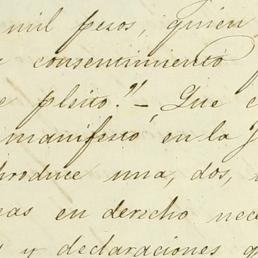 mil pesos, quien
consentimiento
pleito."- Que
manifestó, en la
produce una, dos,
en derecho nece
y declaraciones